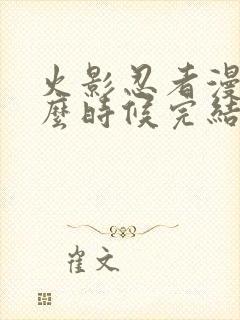 火影忍者漫
麼時候完結
崔文